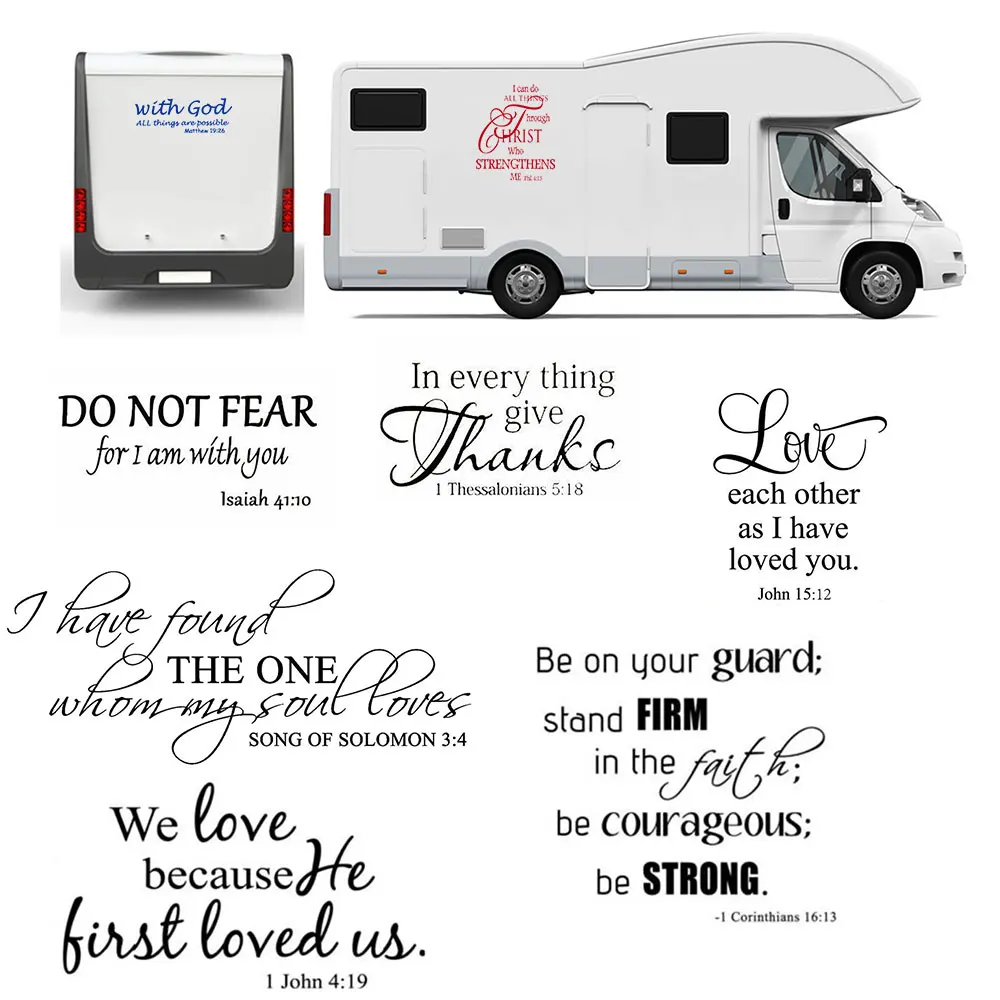 with God
ALL things are possible
Matthew 19:26
I can do
ALL THINGS
Through
CHRIST
Who
STRENGTHENS
ME Phil 4:13
DO NOT FEAR
for I am with you
Isaiah 41:10
In every thing
give
Thanks
1 Thessalonians 5:18
Love
each other
as I have
loved you.
John 15:12
I have found
THE ONE
whom my soul loves
SONG OF SOLOMON 3:4
Be on your guard;
stand FIRM
in the faith;
be courageous;
be STRONG.
-1 Corinthians 16:13
We love
because He
first loved us.
1 John 4:19